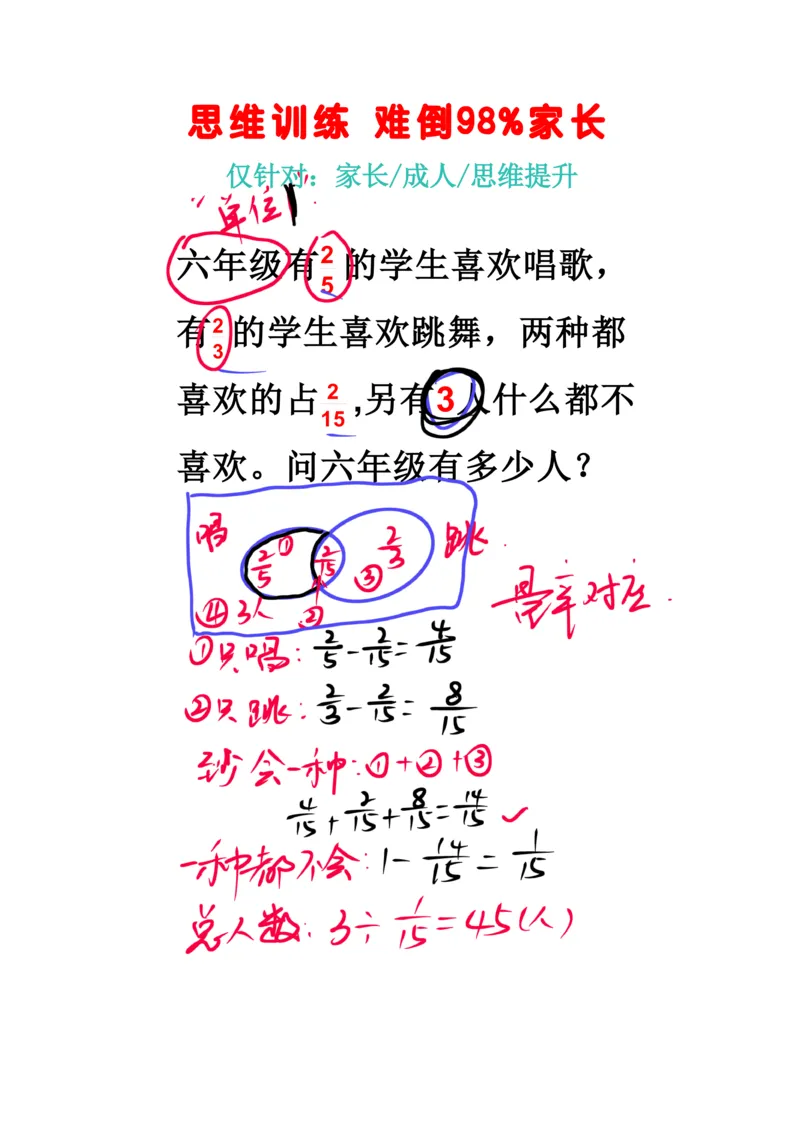 思维训练 难倒98%家长
仅针对：家长/成人/思维提升
“单位1”
六年级有2/5的学生喜欢唱歌，
有2/3的学生喜欢跳舞，两种都
喜欢的占2/15,另有3人什么都不
喜欢。问六年级有多少人？
唱 跳
2/5 ① 2/15 2/3 ③
④3人 ②
量率对应.
①只唱: 2/5-2/15=4/15
②只跳: 2/3-2/15=8/15
至少会一种:①+②+③
4/15+2/15+8/15=14/15 ✓
一种都不会: 1-14/15=1/15
总人数: 3÷1/15=45(人)